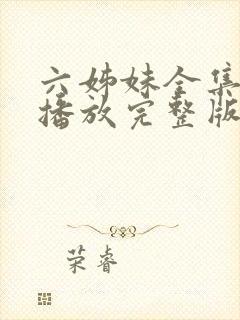 六姊妹全集
播放完整版
荣睿